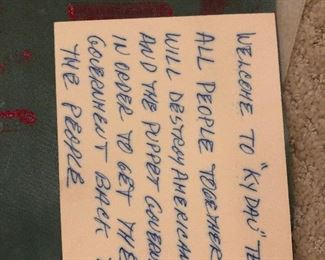 WELCOME TO "KY DAU"
ALL PEOPLE TOGETHER
WILL DESTROY AMERICAN
AND THE PUPPET
IN ORDER TO GET THE
GOVERNMENT BACK
THE PEOPLE